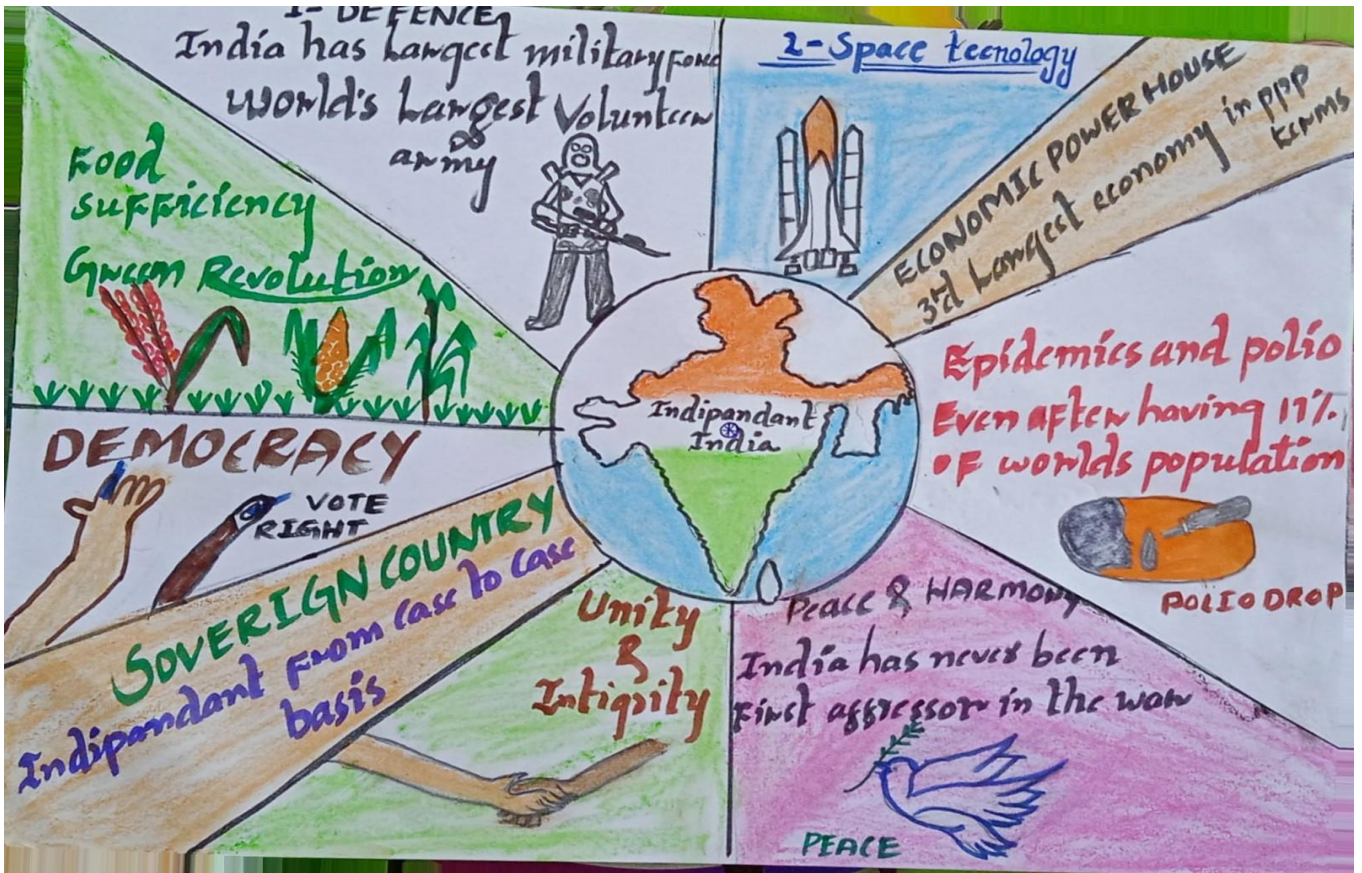 1- DEFENCE
India has Largest military Force
World's Largest Volunteer
army
2- Space tecnology
ECONOMIC POWER HOUSE
3rd Largest economy in ppp
terms
Food
sufficiency
Green Revolution
Epidemics and polio
Even after having 17%
of worlds population
POLIO DROP
Indipandant
India
DEMOCRACY
VOTE
RIGHT
SOVERIGN COUNTRY
Indipandant From case to case
basis
Unity
&
Intiqrity
Peace & HARMONY
India has never been
First aggressor in the war
PEACE